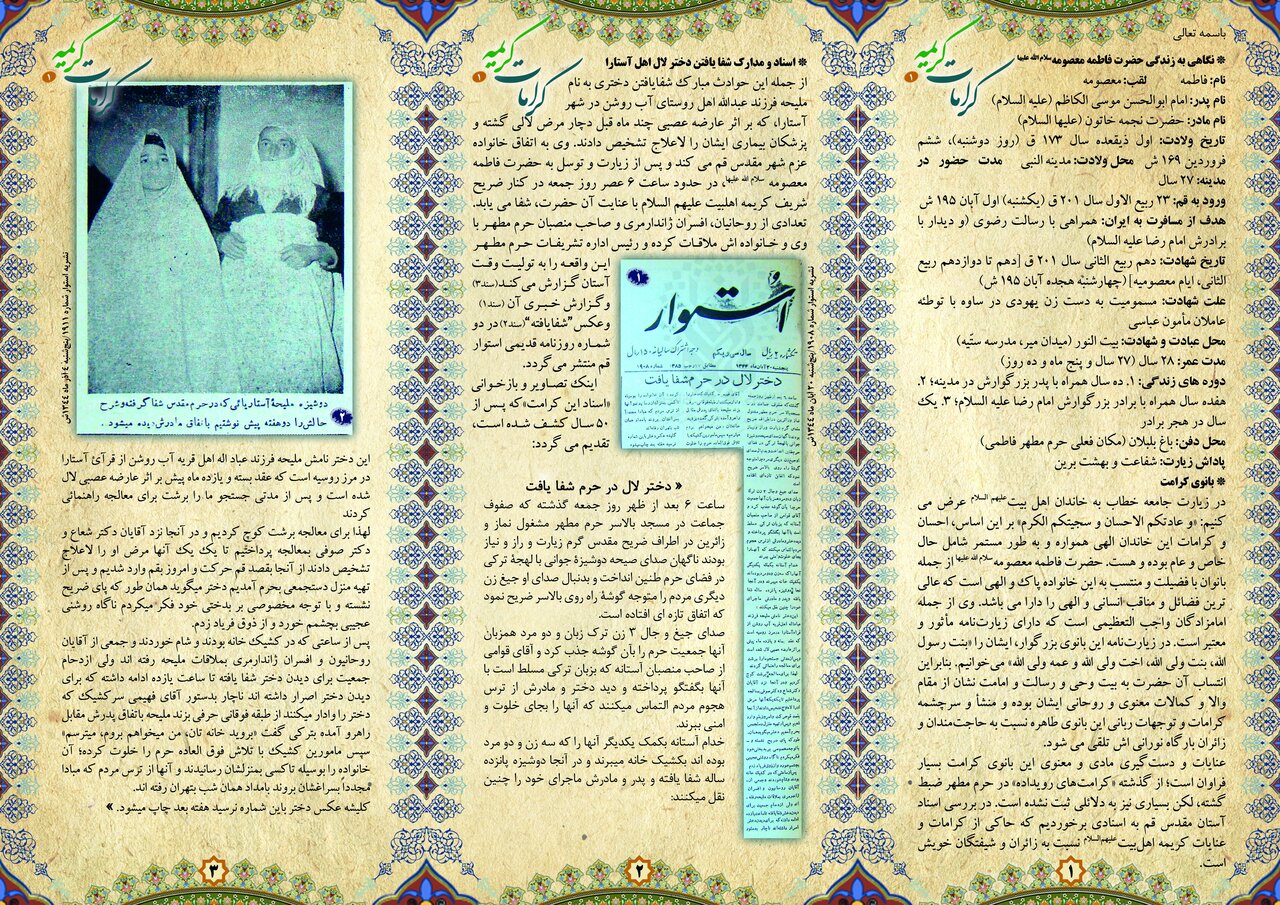 باسمه تعالی
کرامات کریمه
۱
* نگاهی به زندگی حضرت فاطمه معصومه سلام الله علیها
نام: فاطمه لقب: معصومه
نام پدر: امام ابوالحسن موسی الکاظم (علیه السلام)
نام مادر: حضرت نجمه خاتون (علیها السلام)
تاریخ ولادت: اول ذیقعده سال ۱۷۳ ق (روز دوشنبه)، ششم
فروردین ۱۶۹ ش محل ولادت: مدینه النبی مدت حضور در
مدینه: ۲۷ سال
ورود به قم: ۲۳ ربیع الاول سال ۲۰۱ ق (یکشنبه) اول آبان ۱۹۵ ش
هدف از مسافرت به ایران: همراهی با رسالت رضوی (و دیدار با
برادرش امام رضا علیه السلام)
تاریخ شهادت: دهم ربیع الثانی سال ۲۰۱ ق [دهم تا دوازدهم ربیع
الثانی، ایام معصومیه] (چهارشنبه هجده آبان ۱۹۵ ش)
علت شهادت: مسمومیت به دست زن یهودی در ساوه با توطئه
عاملان مأمون عباسی
محل عبادت و شهادت: بیت النور (میدان میر، مدرسه ستیّه)
مدت عمر: ۲۸ سال (۲۷ سال و پنج ماه و ده روز)
دوره های زندگی: ۱. ده سال همراه با پدر بزرگوارش در مدینه؛ ۲.
هفده سال همراه با برادر بزرگوارش امام رضا علیه السلام؛ ۳. یک
سال در هجر برادر
محل دفن: باغ بابلان (مکان فعلی حرم مطهر فاطمی)
پاداش زیارت: شفاعت و بهشت برین
* بانوی کرامت
در زیارت جامعه خطاب به خاندان اهل بیت علیهم السلام عرض می
کنیم: «و عادتکم الاحسان و سجیتکم الکرم» بر این اساس، احسان
و کرامات این خاندان الهی همواره و به طور مستمر شامل حال
خاص و عام بوده و هست. حضرت فاطمه معصومه سلام الله علیها از جمله
بانوان با فضیلت و منتسب به این خانواده پاک و الهی است که عالی
ترین فضائل و مناقب انسانی و الهی را دارا می باشد. وی از جمله
امامزادگان واجب التعظیمی است که دارای زیارت‌نامه مأثور و
معتبر است. در زیارت‌نامه این بانوی بزرگوار، ایشان را «بنت رسول
الله، بنت ولی الله، اخت ولی الله و عمه ولی الله» می‌خوانیم. بنابراین
انتساب آن حضرت به بیت وحی و رسالت و امامت نشان از مقام
والا و کمالات معنوی و روحانی ایشان بوده و منشأ و سرچشمه
کرامات و توجهات ربانی این بانوی طاهره نسبت به حاجت‌مندان و
زائران بارگاه نورانی اش تلقی می شود.
عنایات و دست‌گیری مادی و معنوی این بانوی کرامت بسیار
فراوان است؛ از گذشته «کرامت‌های رویداده» در حرم مطهر ضبط
گشته، لکن بسیاری نیز به دلائلی ثبت نشده است. در بررسی اسناد
آستان مقدس قم به اسنادی برخوردیم که حاکی از کرامات و
عنایات کریمه اهل‌بیت علیهم السلام نسبت به زائران و شیفتگان خویش
است.
۱
کرامات کریمه
۱
* اسناد و مدارک شفا یافتن دختر لال اهل آستارا
از جمله این حوادث مبارک شفایافتن دختری به نام
ملیحه فرزند عبدالله اهل روستای آب روشن در شهر
آستارا، که بر اثر عارضه عصبی چند ماه قبل دچار مرض لالی گشته و
پزشکان بیماری ایشان را لاعلاج تشخیص دادند. وی به اتفاق خانواده
عزم شهر مقدس قم می کند و پس از زیارت و توسل به حضرت فاطمه
معصومه سلام الله علیها، در حدود ساعت ۶ عصر روز جمعه در کنار ضریح
شریف کریمه اهلبیت علیهم السلام با عنایت آن حضرت، شفا می یابد.
تعدادی از روحانیان، افسران ژاندارمری و صاحب منصبان حرم مطهر با
وی و خانواده اش ملاقات کرده و رئیس اداره تشریفات حرم مطهر
این واقعه را به تولیت وقت
آستان گزارش می‌کند (سند۳)
وگزارش خبری آن (سند۱)
وعکس "شفایافته" (سند۲) در دو
شماره روزنامه قدیمی استوار
قم منتشر می‌گردد.
اینک تصاویر و بازخوانی
«اسناد این کرامت» که پس از
۵۰ سال کشف شده است،
تقدیم می گردد:
۱
استوار
تکشماره ۲ ریال سال سی و یکم
دختر لال در حرم شفا یافت
نشریه استوار شماره ۱۹۰۸/پنج‌شنبه ۲۰ آبان ماه ۱۳۴۴ش
« دختر لال در حرم شفا یافت
ساعت ۶ بعد از ظهر روز جمعه گذشته که صفوف
جماعت در مسجد بالاسر حرم مطهر مشغول نماز و
زائرین در اطراف ضریح مقدس گرم زیارت و راز و نیاز
بودند ناگهان صدای صیحه دوشیزهٔ جوانی با لهجهٔ ترکی
در فضای حرم طنین انداخت و بدنبال صدای او جیغ زن
دیگری مردم را متوجه گوشهٔ راه روی بالاسر ضریح نمود
که اتفاق تازه ای افتاده است.
صدای جیغ و جال ۳ زن ترک زبان و دو مرد همزبان
آنها جمعیت حرم را بآن گوشه جذب کرد و آقای قوامی
از صاحب منصبان آستانه که بزبان ترکی مسلط است با
آنها بگفتگو پرداخته و دید دختر و مادرش از ترس
هجوم مردم التماس میکنند که آنها را بجای خلوت و
امنی ببرند.
خدام آستانه بکمک یکدیگر آنها را که سه زن و دو مرد
بوده اند بکشیک خانه میبرند و در آنجا دوشیزه پانزده
ساله شفا یافته و پدر و مادرش ماجرای خود را چنین
نقل میکنند:
۲
کرامات کریمه
۱
دوشیزه ملیحهٔ آستارایی که در حرم مقدس شفا گرفته و شرح
حالش را دو هفته پیش نوشتیم باتفاق مادرش دیده میشود.
۲
نشریه استوار شماره ۱۹۱۱/پنج‌شنبه ۴ آذر ماه ۱۳۴۴ش
این دختر نامش ملیحه فرزند عباد اله اهل قریه آب روشن از قرآئ آستارا
در مرز روسیه است که عقد بسته و یازده ماه پیش بر اثر عارضه عصبی لال
شده است و پس از مدتی جستجو ما را برشت برای معالجه راهنمائی
کردند
لهذا برای معالجه برشت کوچ کردیم و در آنجا نزد آقایان دکتر شعاع و
دکتر صوفی بمعالجه پرداختیم تا یک یک آنها مرض او را لاعلاج
تشخیص دادند از آنجا بقصد قم حرکت و امروز بقم وارد شدیم و پس از
تهیه منزل دستجمعی بحرم آمدیم دختر میگوید همان طور که پای ضریح
نشسته و با توجه مخصوصی بر بدختی خود فکر میکردم ناگاه روشنی
عجیبی بچشمم خورد و از ذوق فریاد زدم.
پس از ساعتی که در کشیک خانه بودند و شام خوردند و جمعی از آقایان
روحانیون و افسران ژاندارمری بملاقات ملیحه رفته اند ولی ازدحام
جمعیت برای دیدن دختر شفا یافته تا ساعت یازده ادامه داشته که برای
دیدن دختر اصرار داشته اند ناچار بدستور آقای فهیمی سرکشیک که
دختر را وادار میکنند از طبقه فوقانی حرفی بزند ملیحه باتفاق پدرش مقابل
راهرو آمده بترکی گفت «بروید خانه تان، من میخواهم بروم، میترسم»
سپس مامورین کشیک با تلاش فوق العاده حرم را خلوت کرده؛ آن
خانواده را بوسیله تاکسی بمنزلشان رسانیدند و آنها از ترس مردم که مبادا
مجدداً بسراغشان بروند بامداد همان شب بتهران رفته اند.
کلیشه عکس دختر باین شماره نرسید هفته بعد چاپ میشود. »
۳